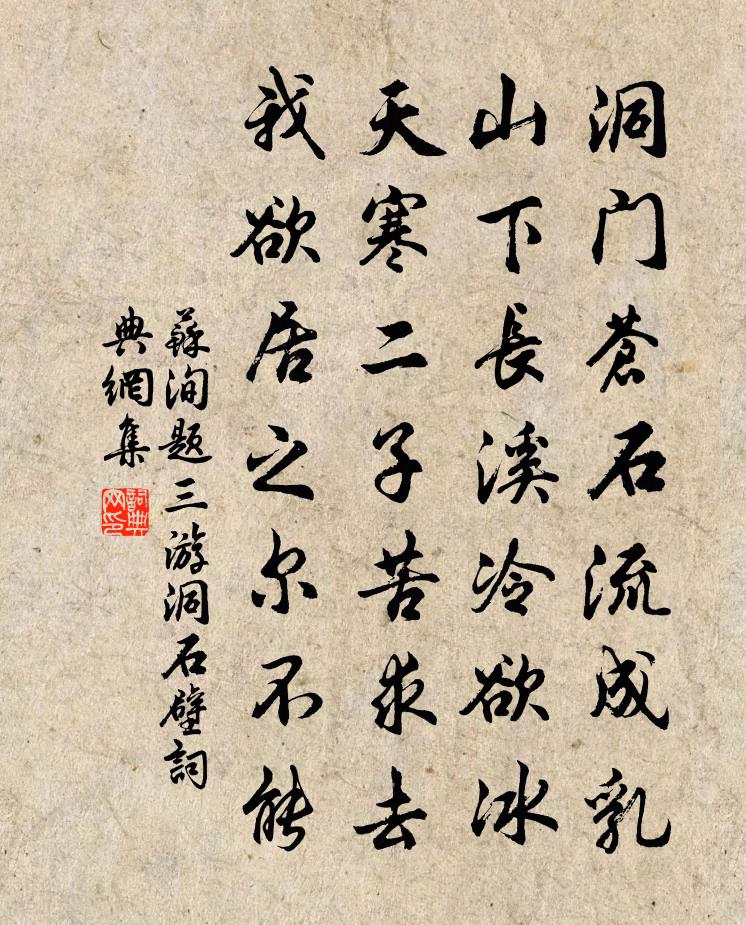 洞门苍石流成乳
山下長溪冷欲冰
天寒二子苦求去
我欲居之尔不能
蘇洵题三游洞石壁詞
典網集
詞典网印